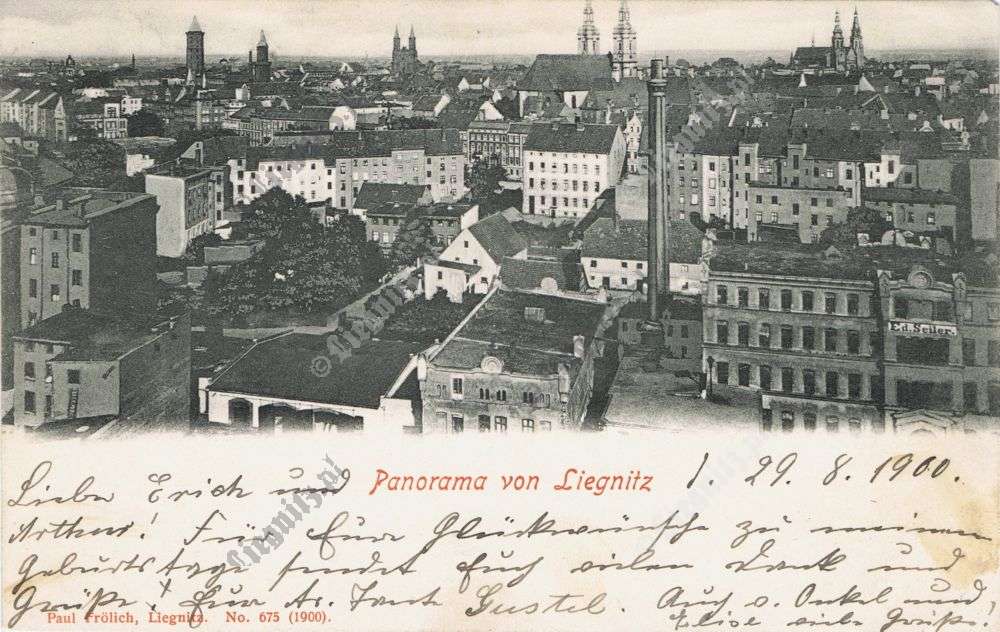 Ed. Seiler.
© Liegnitz.pl
Panorama von Liegnitz
L. 29. 8. 1900.
Liebe Erich und
Arthur! Für Eure Glückwünsche zu meinem
Geburtstage sendet Euch vielen Dank und
Grüße! Eure Tante Gustel. Auch v. Onkel und
Elise viele Grüße!
Paul Frölich, Liegnitz. No. 675 (1900).